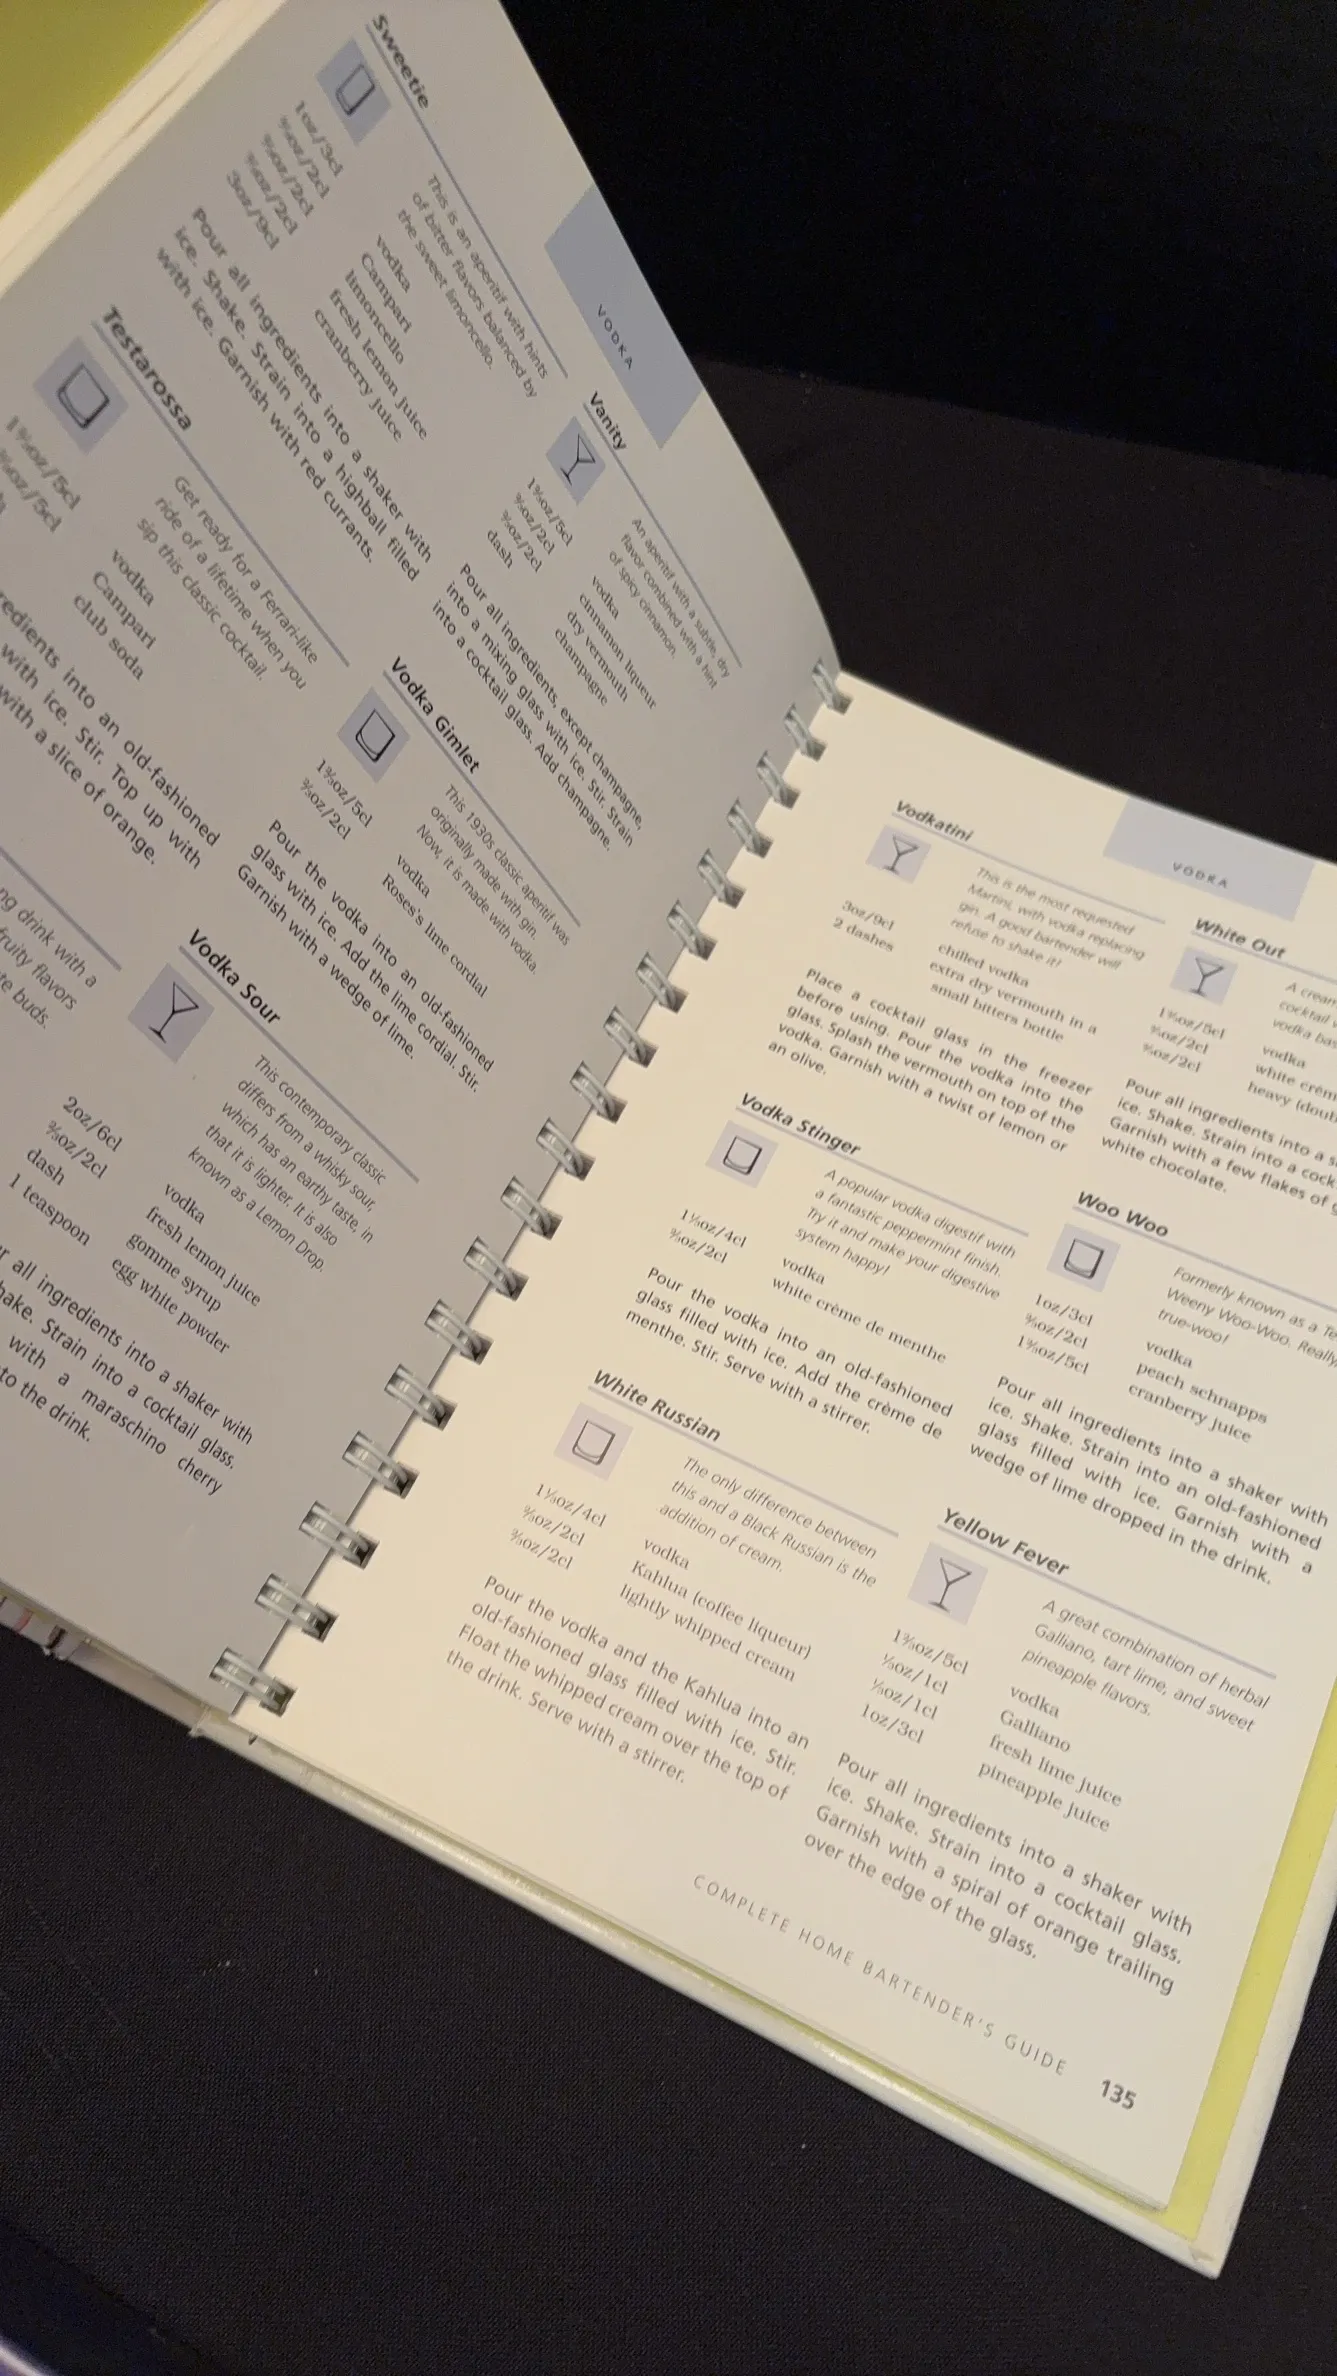 VODKA
Sweetie
This is an aperitif with hints
of bitter flavors balanced by
the sweet limoncello.
1oz/3cl vodka
⅔oz/2cl Campari
⅔oz/2cl limoncello
⅔oz/2cl fresh lemon juice
3oz/9cl cranberry juice
Pour all ingredients into a shaker with
ice. Shake. Strain into a highball filled
with ice. Garnish with red currants.
Testarossa
Get ready for a Ferrari-like
ride of a lifetime when you
sip this classic cocktail.
1⅔oz/5cl vodka
Campari
club soda
into an old-fashioned
with ice. Stir. Top up with
with a slice of orange.
drink with a
fruity flavors
buds.
Vanity
An aperitif with a subtle, dry
flavor combined with a hint
of spicy cinnamon.
1⅔oz/5cl vodka
⅔oz/2cl cinnamon liqueur
⅔oz/2cl dry vermouth
dash champagne
Pour all ingredients, except champagne,
into a mixing glass with ice. Stir. Strain
into a cocktail glass. Add champagne.
Vodka Gimlet
This 1930s classic aperitif was
originally made with gin.
Now, it is made with vodka.
1⅔oz/5cl vodka
⅔oz/2cl Roses's lime cordial
Pour the vodka into an old-fashioned
glass with ice. Add the lime cordial. Stir.
Garnish with a wedge of lime.
Vodka Sour
This contemporary classic
differs from a whisky sour,
which has an earthy taste, in
that it is lighter. It is also
known as a Lemon Drop.
2oz/6cl vodka
⅔oz/2cl fresh lemon juice
dash gomme syrup
1 teaspoon egg white powder
all ingredients into a shaker with
Strain into a cocktail glass.
with a maraschino cherry
to the drink.
VODKA
Vodkatini
This is the most requested
Martini, with vodka replacing
gin. A good bartender will
refuse to shake it!
3oz/9cl chilled vodka
2 dashes extra dry vermouth in a
small bitters bottle
Place a cocktail glass in the freezer
before using. Pour the vodka into the
glass. Splash the vermouth on top of the
vodka. Garnish with a twist of lemon or
an olive.
Vodka Stinger
A popular vodka digestif with
a fantastic peppermint finish.
Try it and make your digestive
system happy!
1⅓oz/4cl vodka
⅔oz/2cl white crème de menthe
Pour the vodka into an old-fashioned
glass filled with ice. Add the crème de
menthe. Stir. Serve with a stirrer.
White Russian
The only difference between
this and a Black Russian is the
addition of cream.
1⅓oz/4cl vodka
⅔oz/2cl Kahlua (coffee liqueur)
⅔oz/2cl lightly whipped cream
Pour the vodka and the Kahlua into an
old-fashioned glass filled with ice. Stir.
Float the whipped cream over the top of
the drink. Serve with a stirrer.
White Out
A
cocktail
vodka
1⅔oz/5cl vodka
⅔oz/2cl white
⅔oz/2cl heavy
Pour all ingredients into a
ice. Shake. Strain into a
Garnish with a few flakes of
white chocolate.
Woo Woo
Formerly known as a
Weeny Woo-Woo. Really,
true-woo!
1oz/3cl vodka
⅔oz/2cl peach schnapps
1⅔oz/5cl cranberry juice
Pour all ingredients into a shaker with
ice. Shake. Strain into an old-fashioned
glass filled with ice. Garnish with a
wedge of lime dropped in the drink.
Yellow Fever
A great combination of herbal
Galliano, tart lime, and sweet
pineapple flavors.
1⅔oz/5cl vodka
⅓oz/1cl Galliano
⅓oz/1cl fresh lime juice
1oz/3cl pineapple juice
Pour all ingredients into a shaker with
ice. Shake. Strain into a cocktail glass.
Garnish with a spiral of orange trailing
over the edge of the glass.
COMPLETE HOME BARTENDER'S GUIDE
135